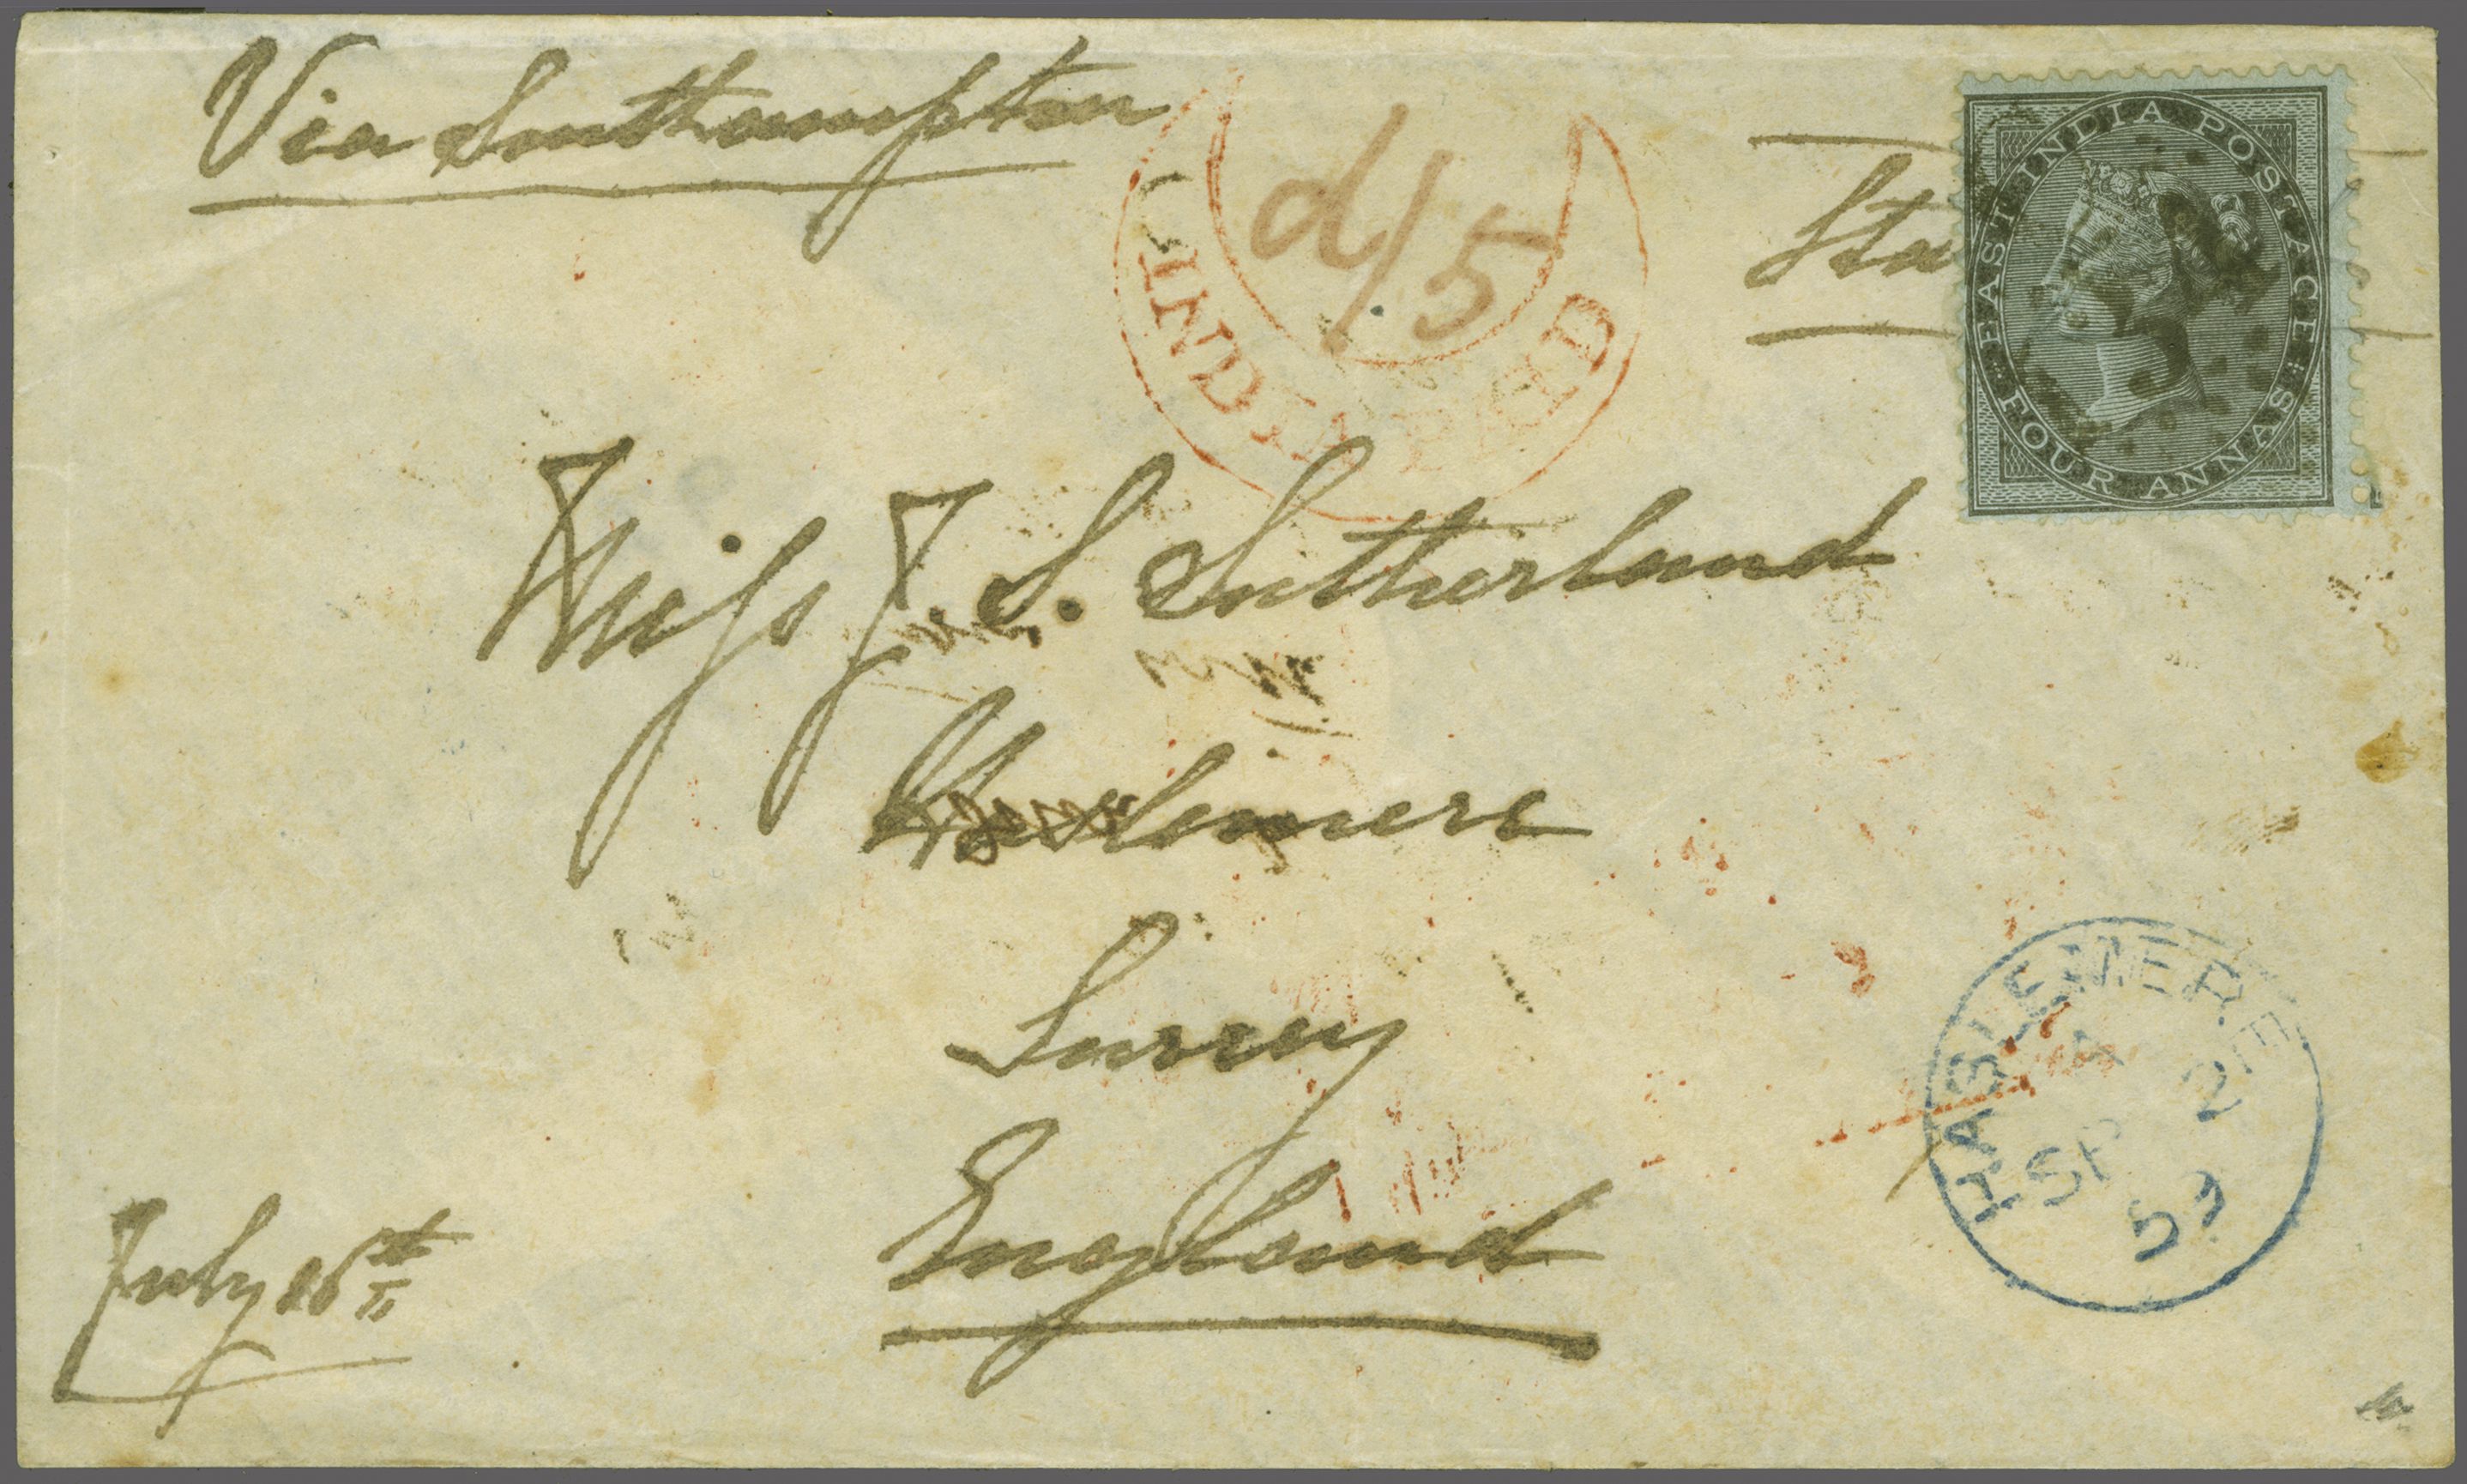 Via Southampton
Sta
EAST INDIA POSTAGE
FOUR ANNAS
d/5
INDIA PAID
Miss J. S. Sutherland
Haslemere
Surrey
England
July 26th
HASLEMERE
A
SP 2
59